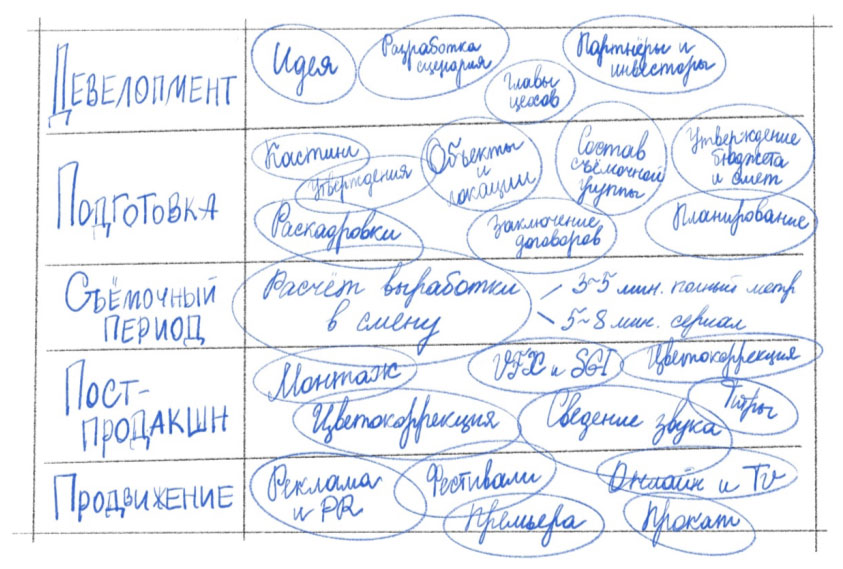 Девелопмент
Идея
Разработка
сценария
Главы
цехов
Партнёры и
инвесторы
Подготовка
Кастинг
Утверждения
Объекты
и
локации
Состав
съёмочной
группы
Утверждение
бюджета
и смет
Раскадровки
Заключение
договоров
Планирование
Съёмочный
период
Расчёт выработки
в смену
3~5 мин. полный метр
5~8 мин. сериал
Пост-
продакшн
Монтаж
VFX и SGI
Цветокоррекция
Цветокоррекция
Сведение звука
Титры
Продвижение
Реклама
и PR
Фестивали
Онлайн и TV
Премьера
Прокат